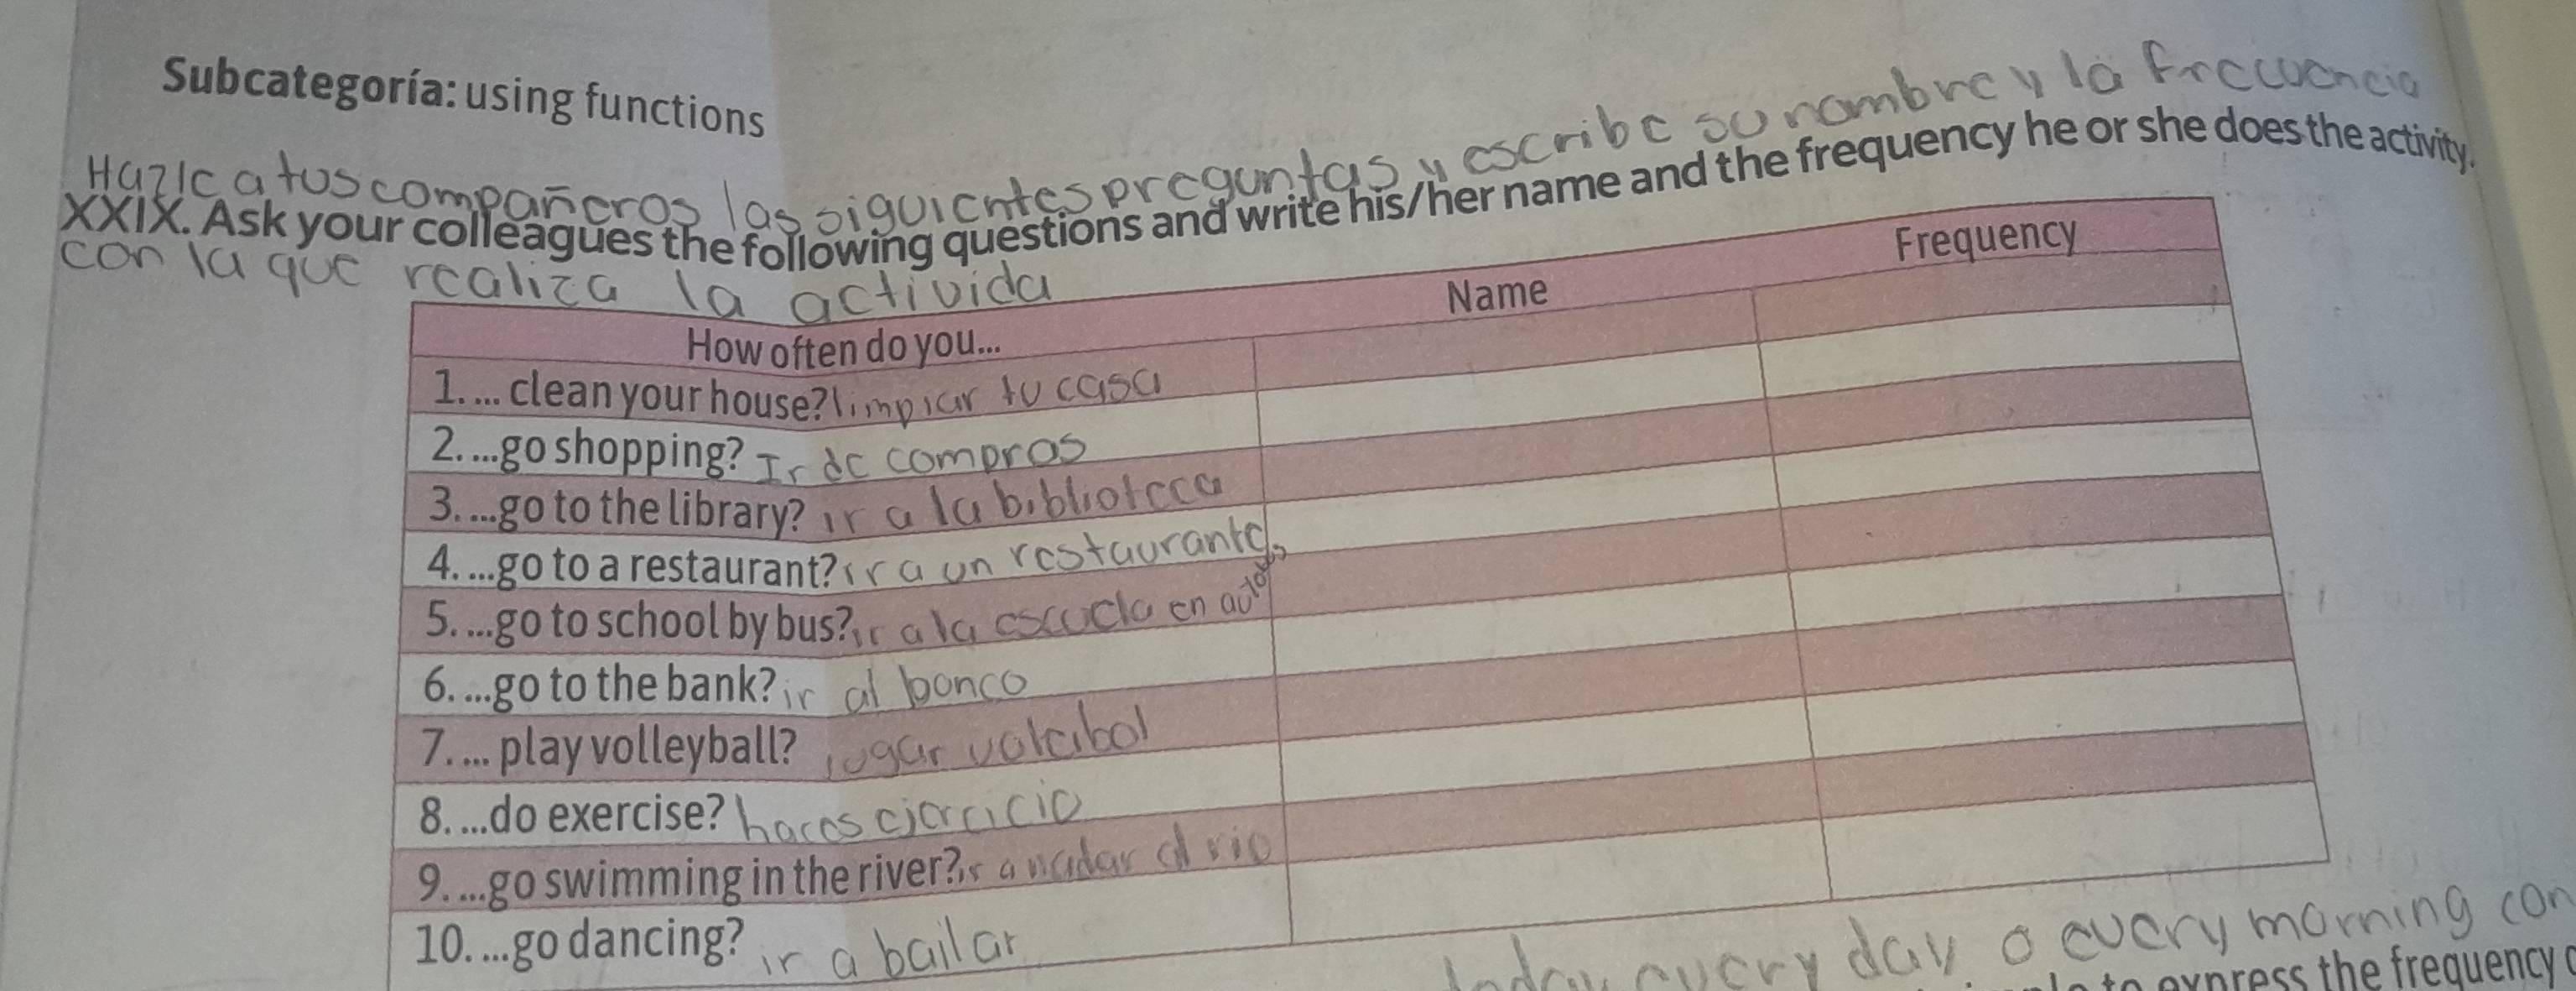 Subcategoría: using functions
Hazle a tus compañeros las siguientes preguntas y escribe su nombre y la frecuencia
XXIX. Ask your colleagues the following questions and write his/her name and the frequency he or she does the activity.
con la que realiza la activida
How often do you... Name Frequency
1. ... clean your house? limpiar tu casa
2. ...go shopping? Ir de compras
3. ...go to the library? ir a la biblioteca
4. ...go to a restaurante? ir a un restaurante
5. ...go to school by bus? ir a la escuela en
6. ...go to the bank? ir al banco
7. ... play volleyball? jugar voleibol
8. ...do exercise? haces ejercicio
9. ...go swimming in the river? ir a nadar al rio
10. ...go dancing? ir a bailar
every day o every morning con
to express the frequency